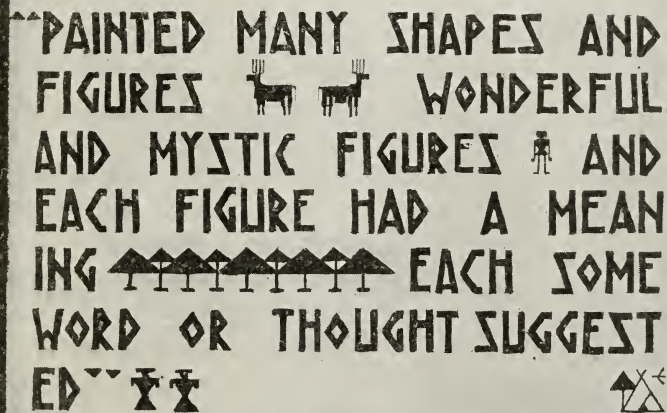 PAINTED MANY SHAPES AND
FIGURES WONDERFUL
AND MYSTIC FIGURES AND
EACH FIGURE HAD A MEAN
ING EACH SOME
WORD OR THOUGHT SUGGEST
ED